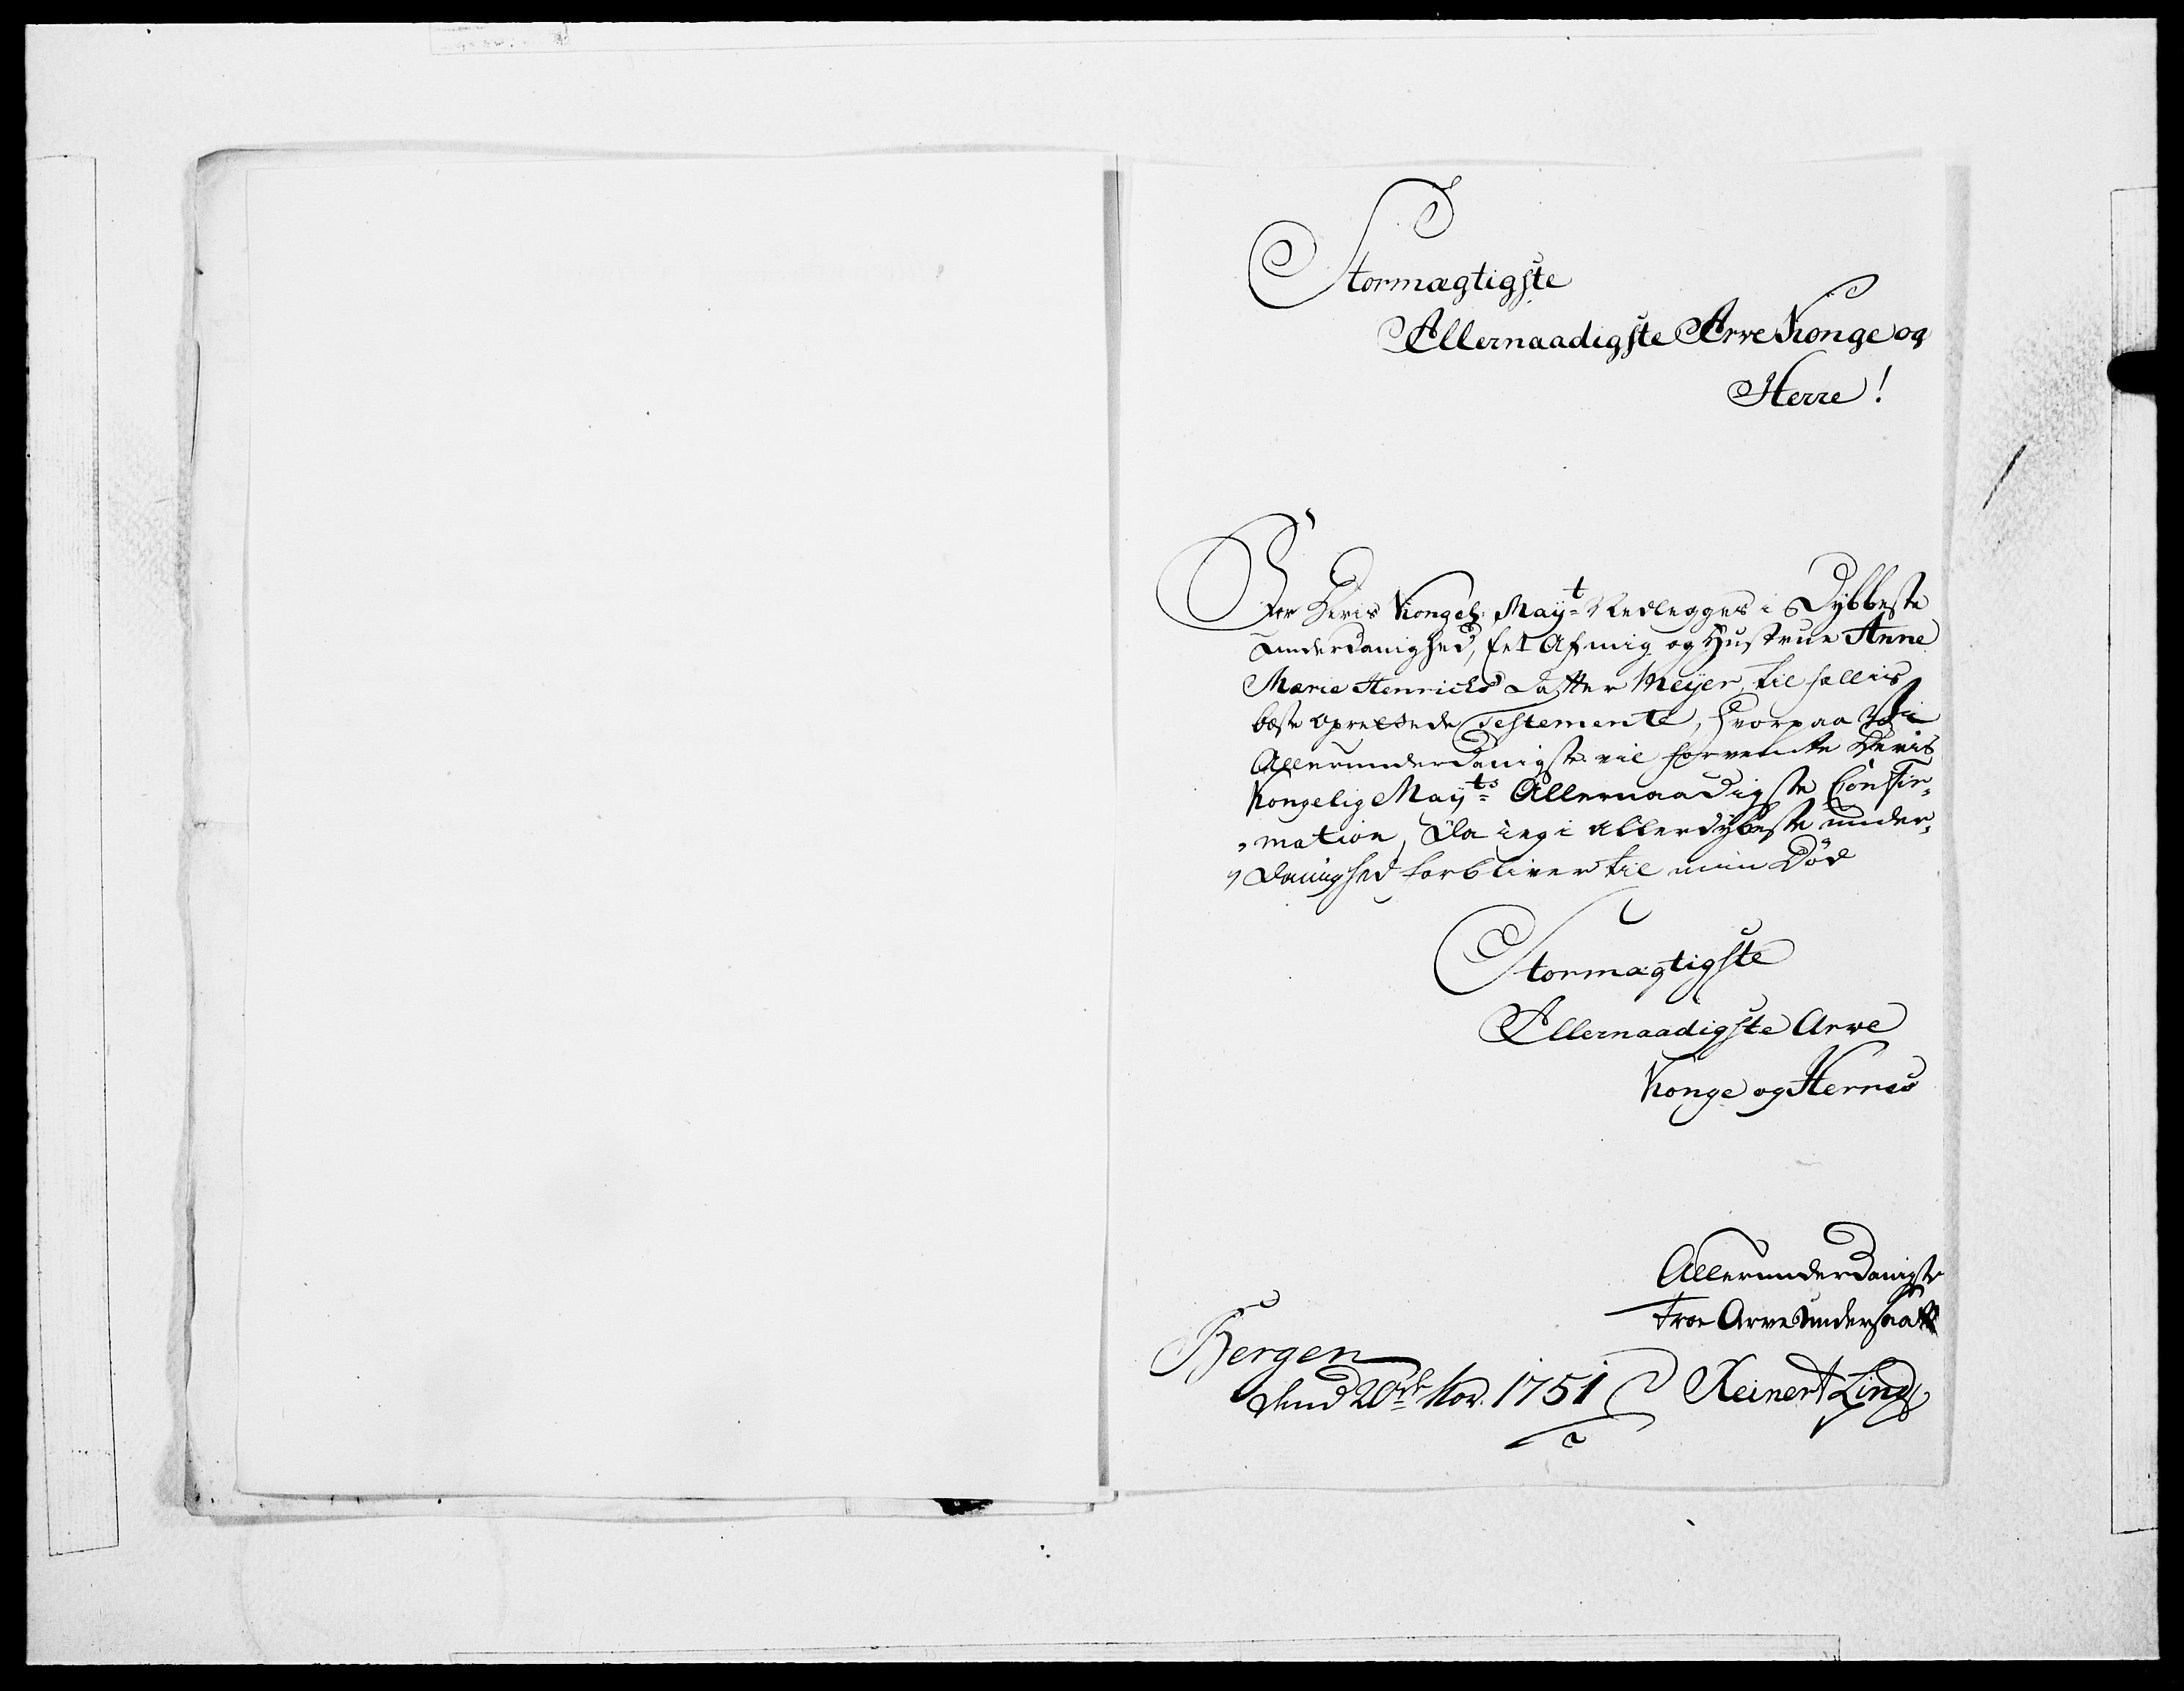 Stormægtigste
Allernaadigste Arve Konge og
Herre!
For Deris Kongel: Mayt= Nedlegges i Dybbeste
underdanighed, Eet Af mig og Hustrue Anne
Marie Henrichs Datter Meyer, til fællis
beste oprettede Testemente, hvorpaa Wi
Allerunderdanigste vil forvente Deris
Kongelig Mayts= Allernaadigste Confir„
„mation, Da ieg i allerdybeste under„
„danighed forbliver til min Död
Stormægtigste
Allernaadigste Arve
Konge og Herres
Allerunderdanigste
troe Arve Undersaatt
Bergen
dend 20de Nov. 1751
Reinert Lind